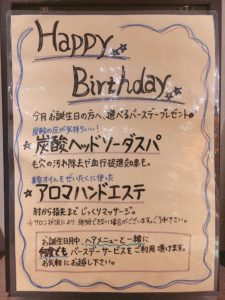 Happy
Birthday
今月お誕生日の方へ、選べるバースデープレゼント。
炭酸の圧が気持ちいい!
☆炭酸ヘッドソーダスパ
毛穴の汚れ除去や血行促進効果も。
オイルをぜいたくに使った
☆アロマハンドエステ
肘から指先まで じっくりマッサージ。
※サロン状況により、施術できない場合がございます。ご了承下さい。
お誕生日月中、ヘアメニューと一緒に
何度でも バースデーサービスをご利用頂けます。
お気軽に お越し下さい。